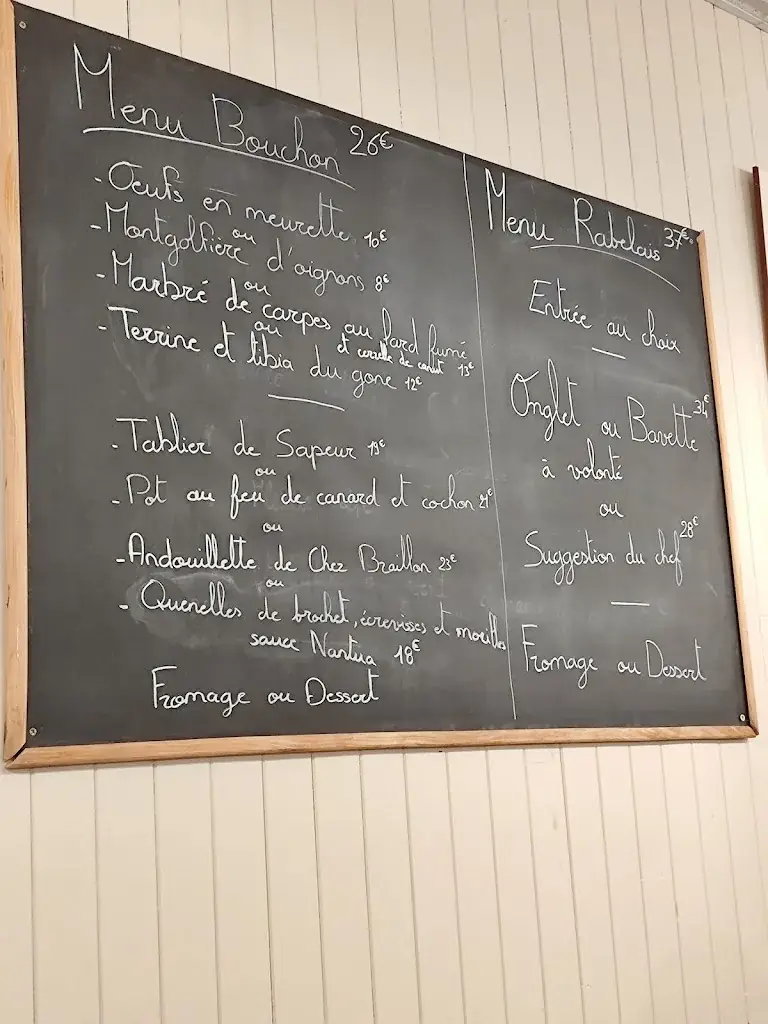 Menu Bouchon 26€
- Œufs en meurette 10€
ou
- Montgolfière d'oignons 8€
ou
- Marbré de carpes au lard fumé
et cervelle de canut 13€
ou
- Terrine et tibia du gone 12€
- Tablier de Sapeur 19€
ou
- Pot au feu de canard et cochon 21€
ou
- Andouillette de Chez Braillon 23€
ou
- Quenelles de brochet, écrevisses et morilles
sauce Nantua 18€
Fromage ou Dessert
Menu Rabelais 37€
Entrée au choix
Onglet ou Bavette 34€
à volonté
ou
Suggestion du chef 28€
Fromage ou Dessert